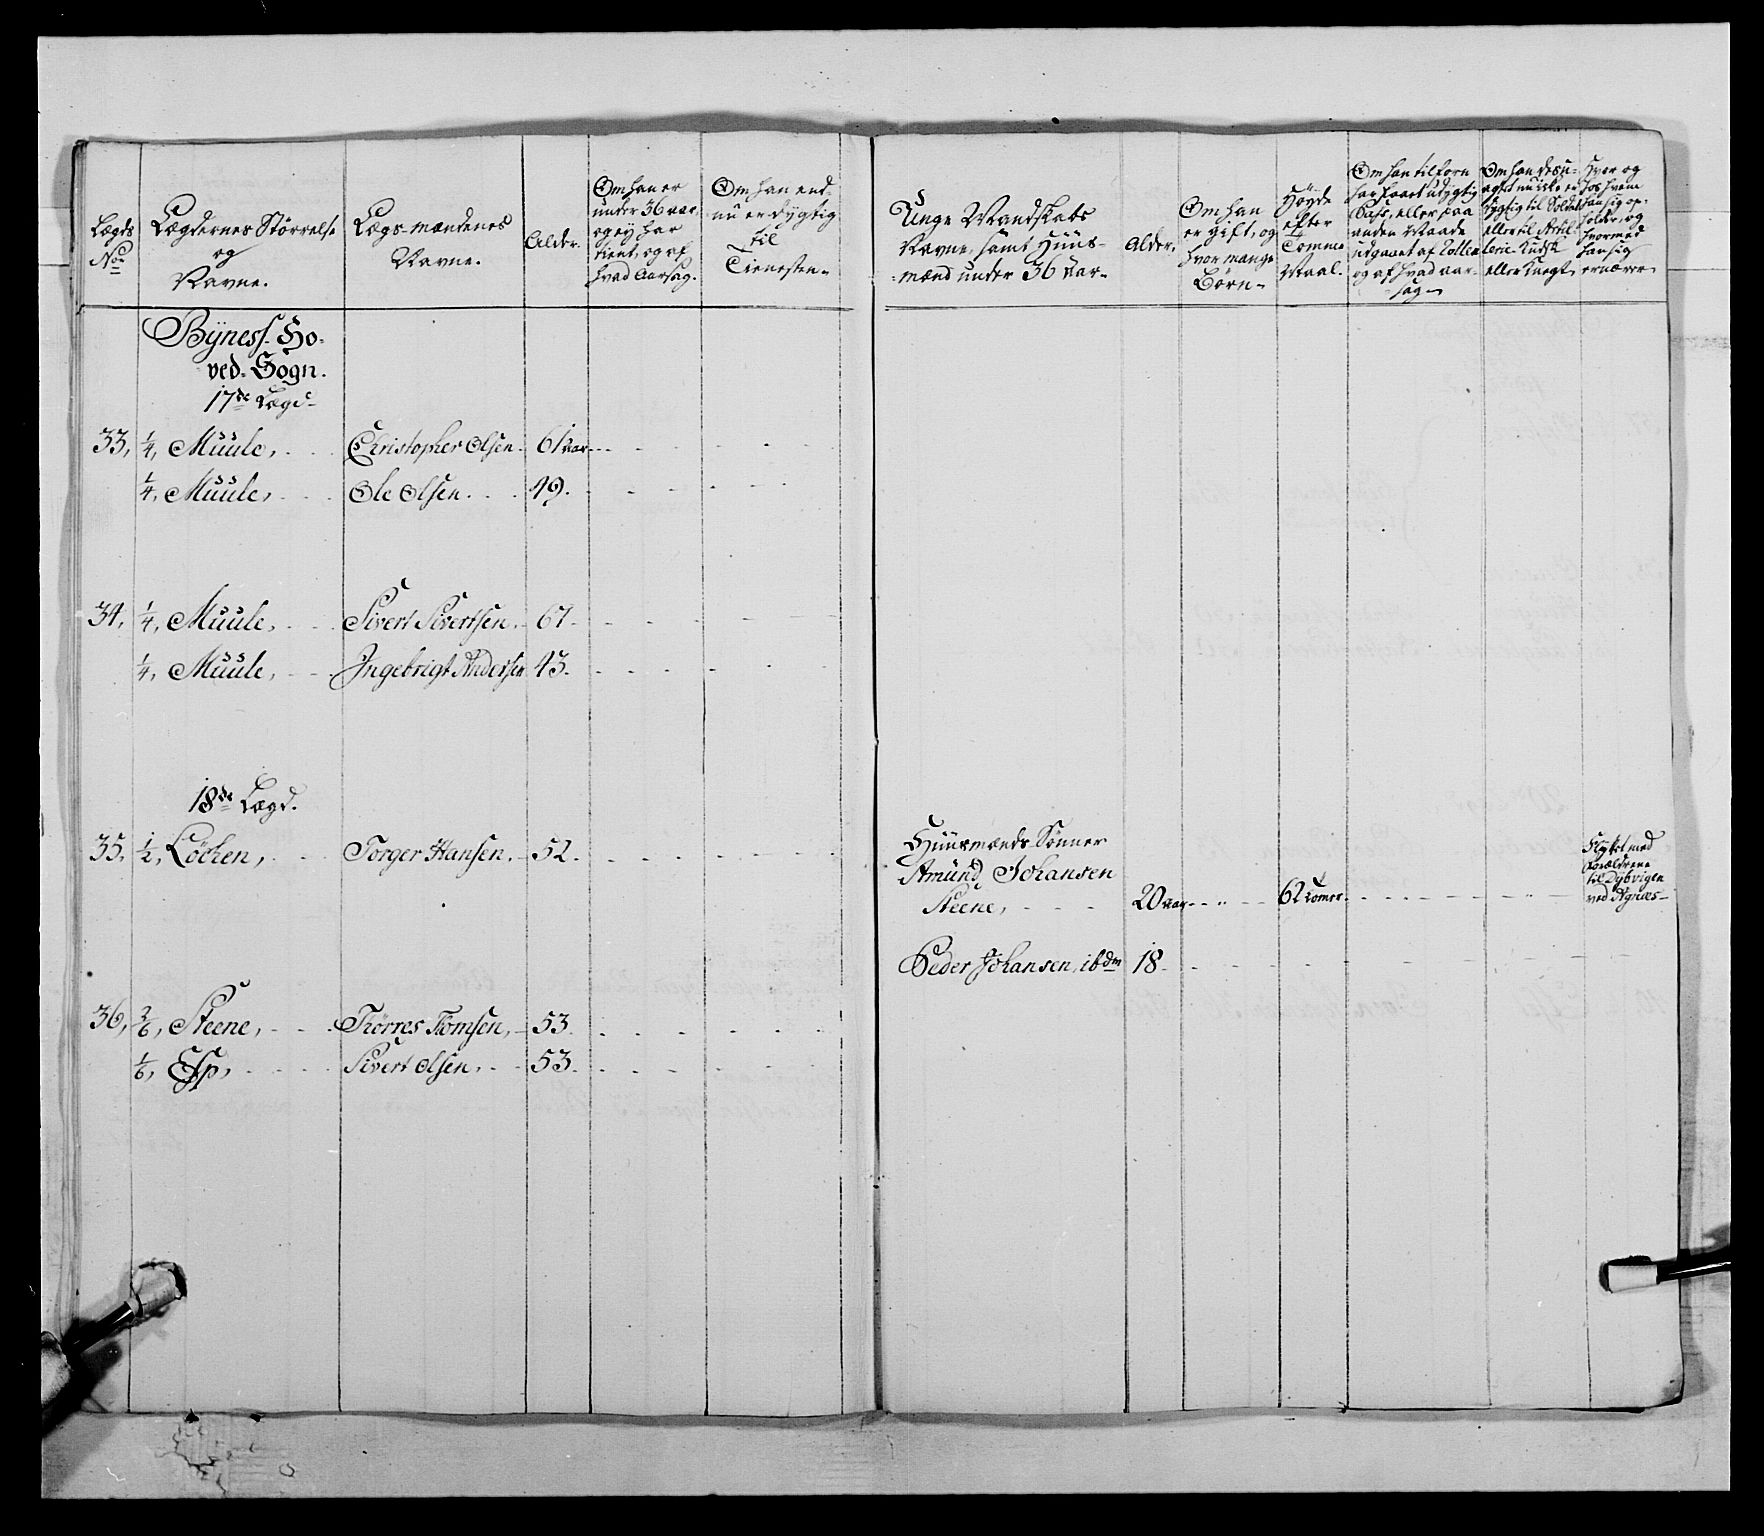 Lægds
No
Lægdernes Störrelse
og
Navne.
Lægs-mændenes
Navne.
Alder.
Om han er
under 36 aar,
og ey har
tient, og af
hvad Aarsag.
Om han end-
nu er dygtig
til
Tienesten
Unge Mandskabs
Navne, samt Huus-
mænd under 36 aar
Alder.
Om han
er gift, og
hvor mange
Börn
Höyde
efter
Tomme
Maal.
Om han tilforn
har havt udygtig
Pass, eller paa
anden Maade
udgaaet af Rollen
og af hvad aar-
sag
Om han desu-
agtet nu ikke er
dygtig til Soldat
eller til Artil-
lerie-Kudsk
eller Knegt
Hvor og
hos hvem
han sig op-
holder, og
hvormed
han sig
ernærer
Bÿness-Ho-
ved-Sogn.
17de Lægd
33, 1/4, Muule, Christopher Olsen 61 aar
1/4, Muule, Ole Olsen 49.
34, 1/4, Muule, Sivert Sivertsen 67
1/4, Muule, Ingebrigt Andersen 43.
18de Lægd.
35, 1/2, Löchen, Torger Hansen 52.
Huusmænds Sönner
Amund Johansen
Steene, 20 aar 62 tomer
Flyttet med
Forældrene
til Dybvigen
ved Agnæs
Peder Johansen, ibdm 18
36, 2/6, Steene, Tørres Tomsen, 53
1/6, Essp, Sivert Olsen, 53